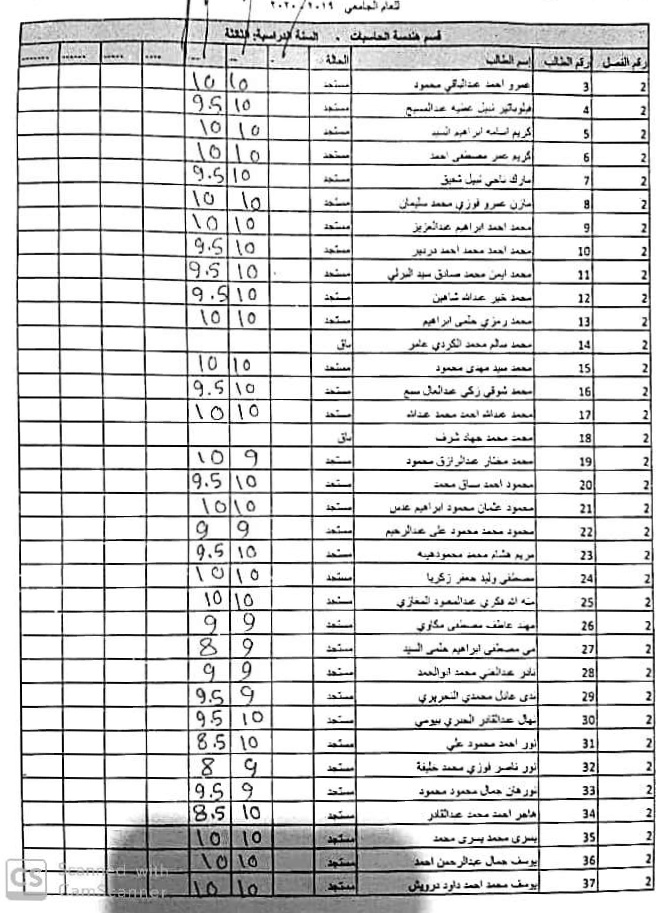 للعام الجامعي ٢٠١٩ / ٢٠٢٠
قسم هندسة الحاسبات . السنة الدراسية: الثالثة
رقم الفصل رقم الطالب إسم الطالب الحالة
2 3 عمرو احمد عبدالباقي محمود مستجد 10 10
2 4 فيلوباتير نبيل عطيه عبدالمسيح مستجد 10 9.5
2 5 كريم اسامه ابراهيم السيد مستجد 10 10
2 6 كريم عمر مصطفى احمد مستجد 10 10
2 7 مارك ناجي نبيل مستجد 10 9.5
2 8 مازن عمرو فوزي محمد سليمان مستجد 10 10
2 9 محمد احمد ابراهيم عبدالعزيز مستجد 10 10
2 10 محمد احمد محمد احمد دردير مستجد 10 9.5
2 11 محمد ايمن محمد صادق سيد مستجد 10 9.5
2 12 محمد خير عبدالله شاهين مستجد 10 9.5
2 13 محمد رمزي حلمى ابراهيم مستجد 10 10
2 14 محمد سالم محمد الكردي عامر باق
2 15 محمد سيد مهدى محمود مستجد 10 10
2 16 محمد شوقي زكى عبدالعال مستجد 10 9.5
2 17 محمد عبدالله احمد محمد عبدالله مستجد 10 10
2 18 محمد محمد جهاد شرف باق
2 19 محمد مختار عبدالرازق محمود مستجد 9 10
2 20 محمود احمد محمد مستجد 10 9.5
2 21 محمود عثمان محمود ابراهيم عدس مستجد 10 10
2 22 محمود محمد محمود على عبدالرحيم مستجد 9 9
2 23 مريم هشام محمد محمودهيبه مستجد 10 9.5
2 24 مصطفى وليد جعفر زكريا مستجد 10 10
2 25 منه الله فكري عبدالمحمود المغازي مستجد 10 10
2 26 مهند عاطف مصطفى مكاوي مستجد 9 9
2 27 مى مصطفى ابراهيم حلمى السيد مستجد 9 8
2 28 نادر عبدالغني محمد ابوالحمد مستجد 9 9
2 29 ندى عادل محمدي النحريري مستجد 9 9.5
2 30 نهال عبدالقادر بيومي مستجد 10 9.5
2 31 نور احمد محمود علي مستجد 10 8.5
2 32 نور ناصر فوزي محمد خليفة مستجد 9 8
2 33 نورهان جمال محمود محمود مستجد 9 9.5
2 34 هاجر احمد محمد عبدالقادر مستجد 10 8.5
2 35 يسرى محمد يسرى محمد مستجد 10 10
2 36 يوسف جمال عبدالرحمن احمد مستجد 10 10
2 37 يوسف محمد احمد داود درويش مستجد 10 10
CS Scanned with
CamScanner